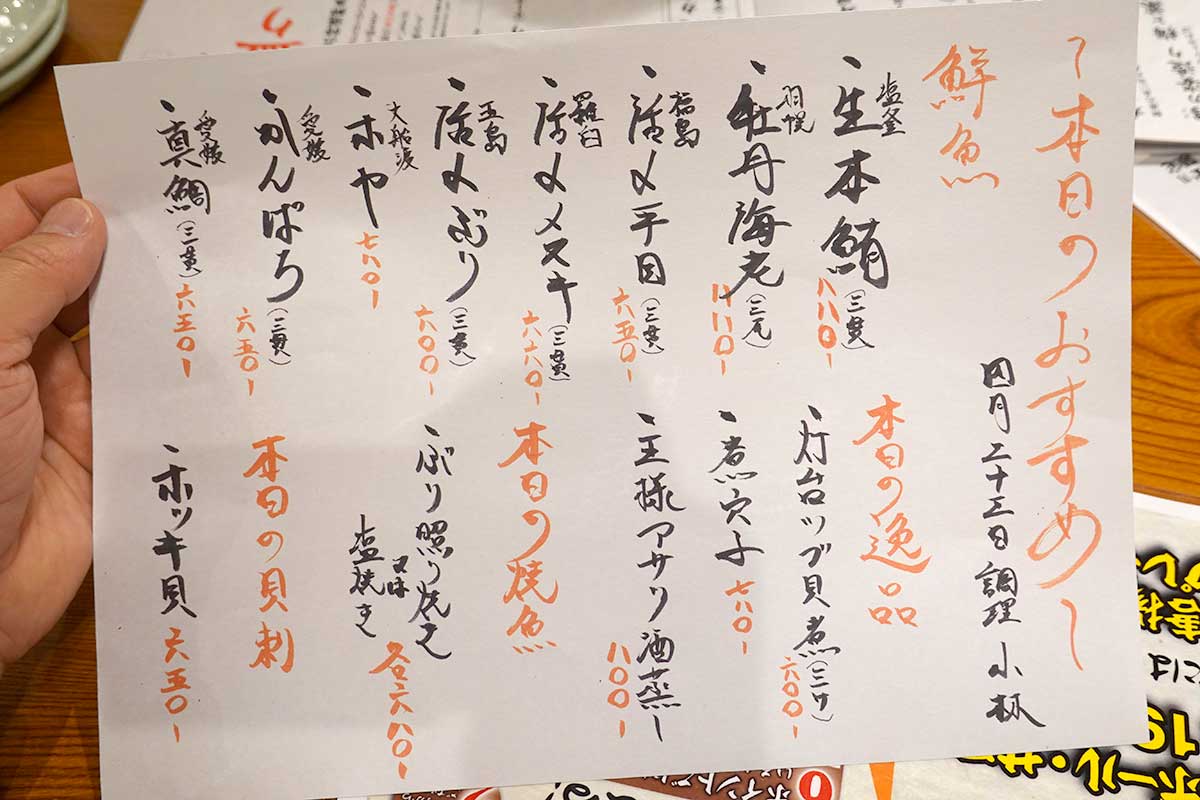 〜本日のおすすめ〜
四月二十三日 調理 小林
鮮魚
塩釜
、生本鮪(三貫)
八八〇ー
羽幌
、牡丹海老(三尾)
福島
、活〆平目(三貫)
六五〇ー
羅臼
、活〆メヌキ(三貫)
六六〇ー
五島
、活〆ぶり(三貫)
六〇〇ー
大船渡
、ホヤ
七八〇ー
愛媛
、かんぱち(三貫)
六五〇ー
愛媛
、真鯛(三貫)
六五〇ー
本日の逸品
、灯台ツブ貝煮(三ケ)
六〇〇ー
、煮穴子
七八〇ー
、王様アサリ酒蒸し
八〇〇ー
本日の焼魚
、ぶり照り焼き
又は
塩焼き
各六八〇ー
本日の貝刺
、ホッキ貝
六五〇ー